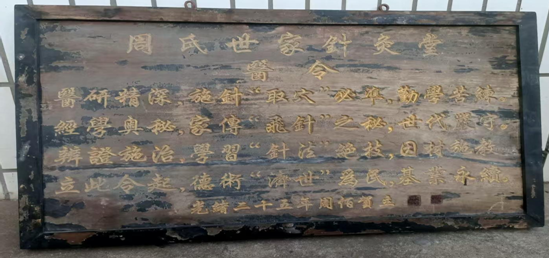 周氏世家針灸堂
醫令
醫研精深,施針“取穴”必準,勤學苦讀
經學奧秘,家傳“飛針”之秘,世代
辨證施治,學習“針法”絕技,因
立此令起,德術“濟世”為民,基業永
光緒二十五年周佰實立